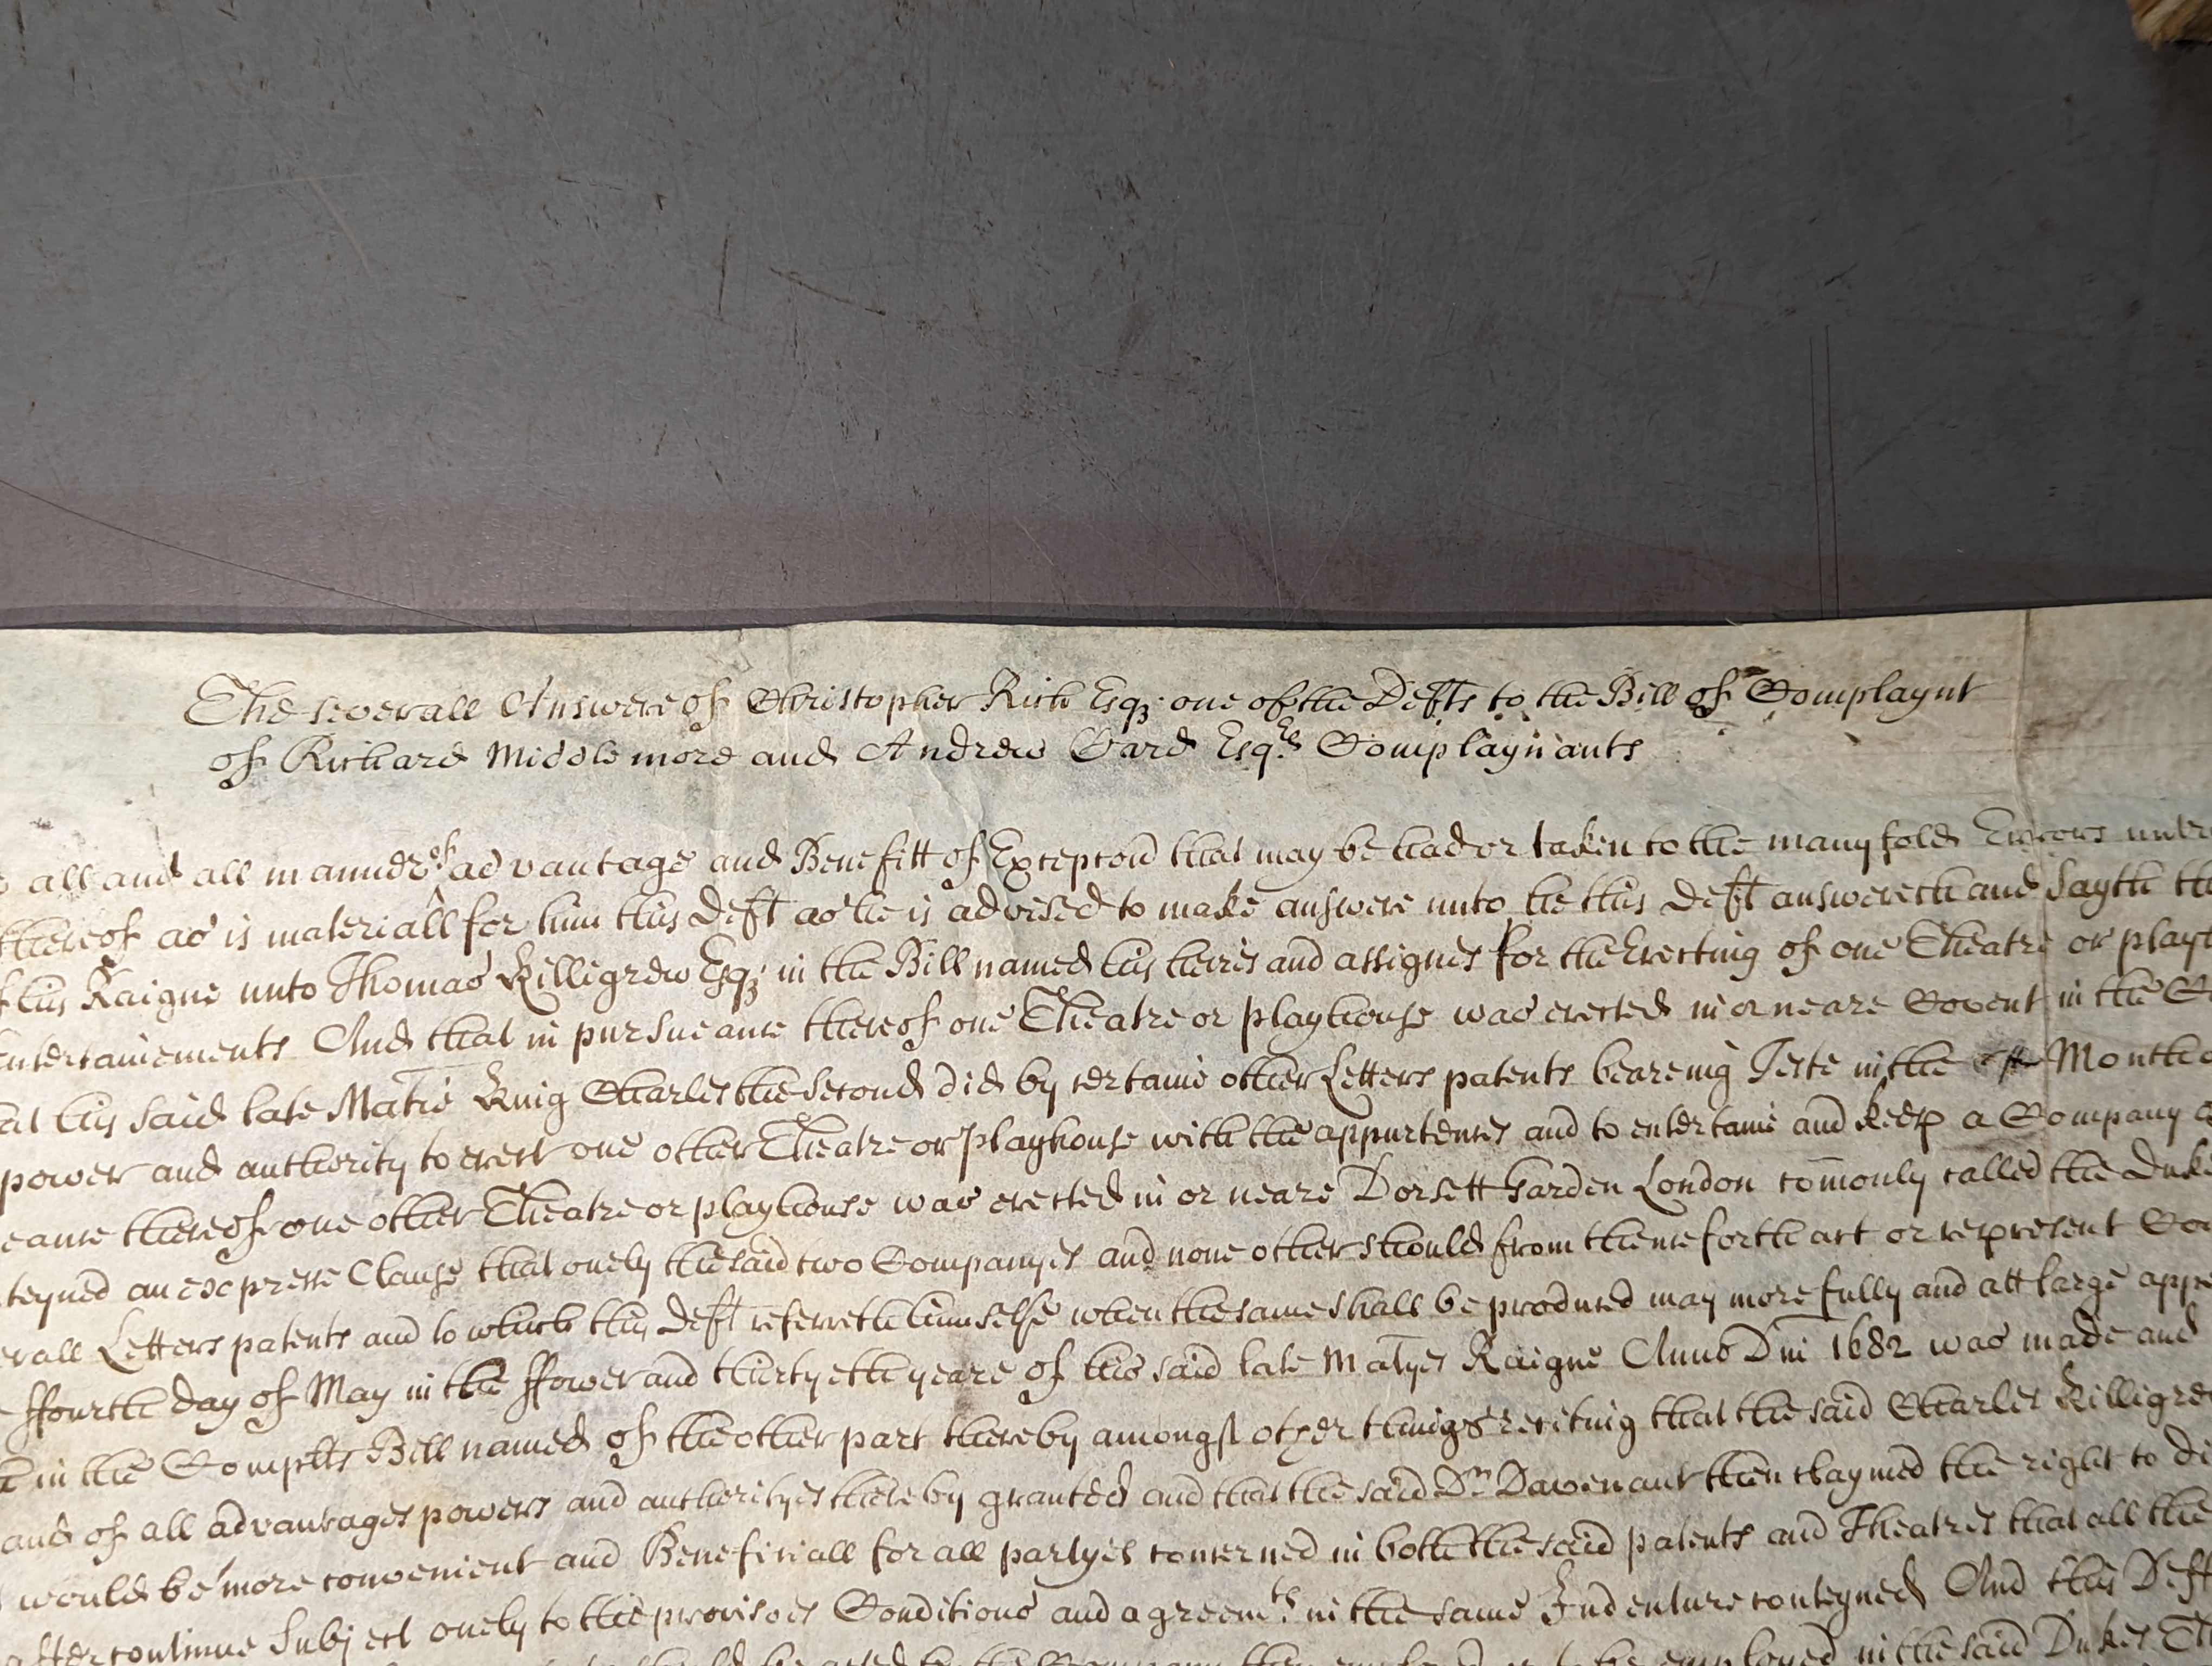 The severall Answere of Christopher Rich Esqz. one of the Defts to the Bill of Complaynt
of Richard Middlemore and Andrew Card Esqrs Complaynants
all and all manner of advantage and Benefitt of Excepcon that may be had or taken to the manyfold Errors
thereof as is materiall for him this Deft as he is advised to make answere unto he this Deft answereth and Sayth
his Raigne unto Thomas Killigrew Esqz. in the Bill named his heires and assignes for the Erecting of one Theatre or
And that in pursueance thereof one Theatre or playhouse was erected in or neare Covent in the
his said late Matie King Charles the Second did by certaine other Letters patents beareing Teste in the Month
power and authority to erect one other Theatre or Playhouse with the appurtences and to entertaine and keep a Company
thereof one other Theatre or playhouse was erected in or neare Dorsett Garden London comonly called the
teyned an expresse Clause that onely the said two Companyes and none other should from thenceforth act or represent
Letters patents and to which this Deft referreth himselfe when the same shall be produced may more fully and att large
ffourth day of May in the ffower and thirtyeth yeare of his said late Matyes Raigne Anno Dni 1682 was made and
in the Complts Bill named of the other part thereby amongst other things reciteing that the said Charles
and of all advantages powers and authorityes thereby granted and that the said Dr Davenant then claymed the right to
would be more convenient and Beneficiall for all partyes concerned in both the said patents and Theatres that all the
continue Subject onely to the provisoes Conditions and agreemts in the same Indenture conteyned And this Deft
in the said Dukes